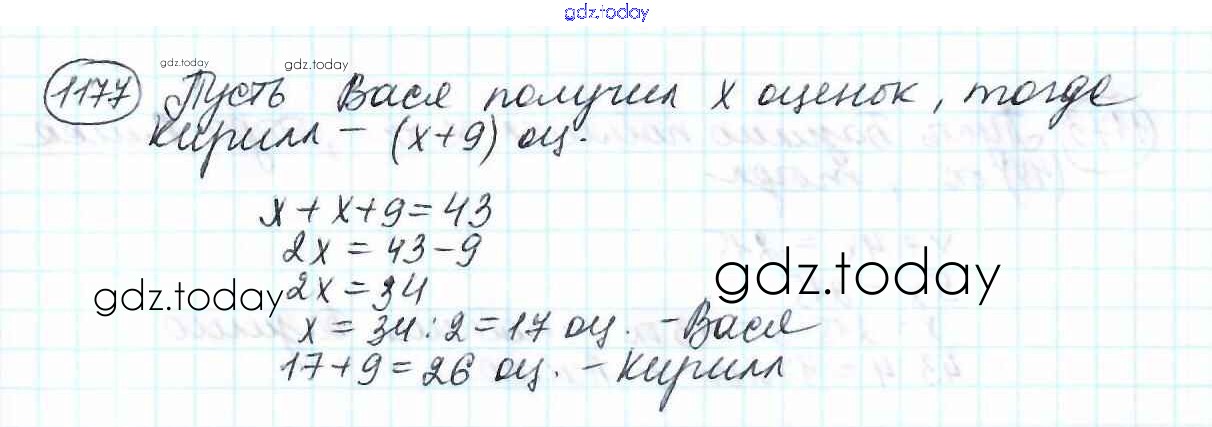 gdz.today
gdz.today gdz.today
1177 Пусть Вася получил х оценок, тогда
Кирилл – (х+9) оц.
х + х+9 = 43
2х = 43-9
gdz.today
2х = 34
gdz.today
х = 34:2 = 17 оц. – Вася
17+9 = 26 оц. – Кирилл